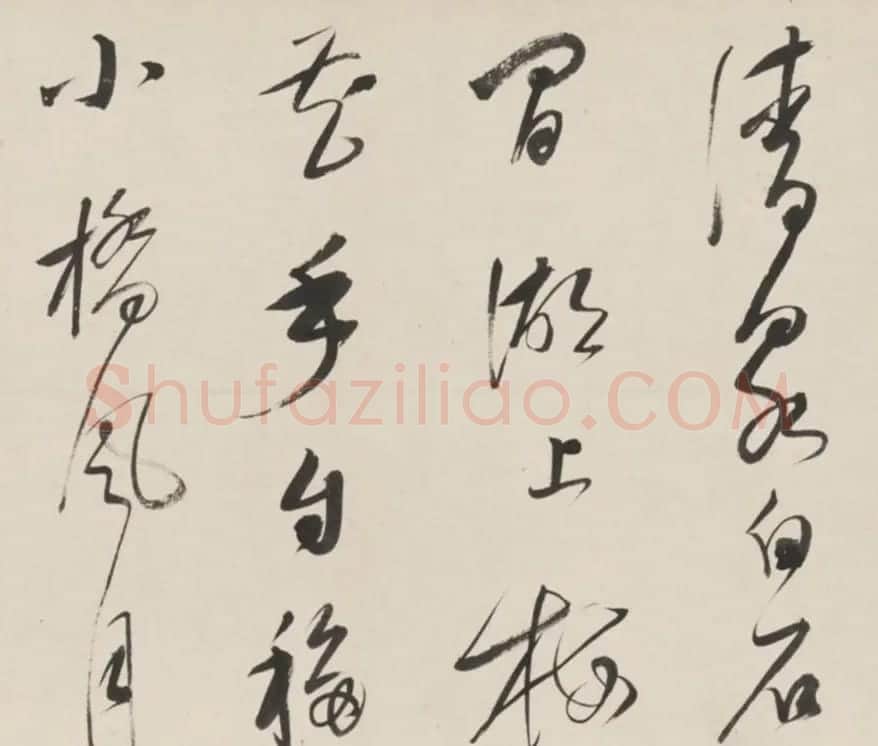 清泉白石
間湖上梅
花手自移
小橋風月
Shufaziliao.COM